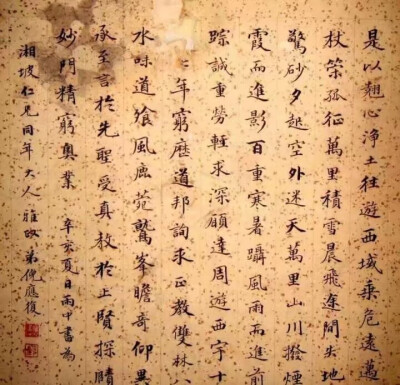 是以翹心淨土往遊西域乘危遠邁
杖策孤征萬里積雪晨飛途間失地
驚砂夕起空外迷天萬里山川撥煙
霞而進影百重寒暑躡風雨而進前
踪誠重勞輕求深願達周遊西宇十
年窮歷道邦詢求正教雙林八
水味道飡風鹿菀鷲峯瞻奇仰異
承至言於先聖受真教於上賢探賾
妙門精窮奧業 辛亥夏日雨中書為
湘坡仁兄同年大人雅政 弟倪應復